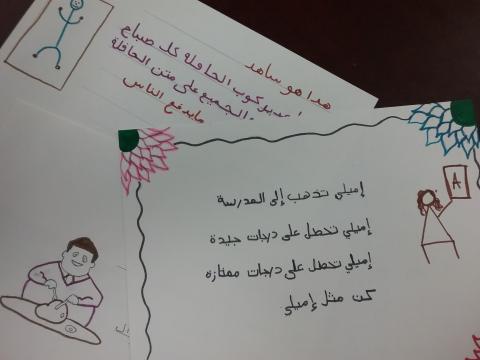 هدا هو ساهد
الحافلة كل صباح
الجميع على متن الحافلة
مايدفع الناس
إميلي تذهب إلى المدرسة
إميلي تحصل على درجات جيدة
إميلي تحصل على درجات ممتازة
كن مثل إميلي
A